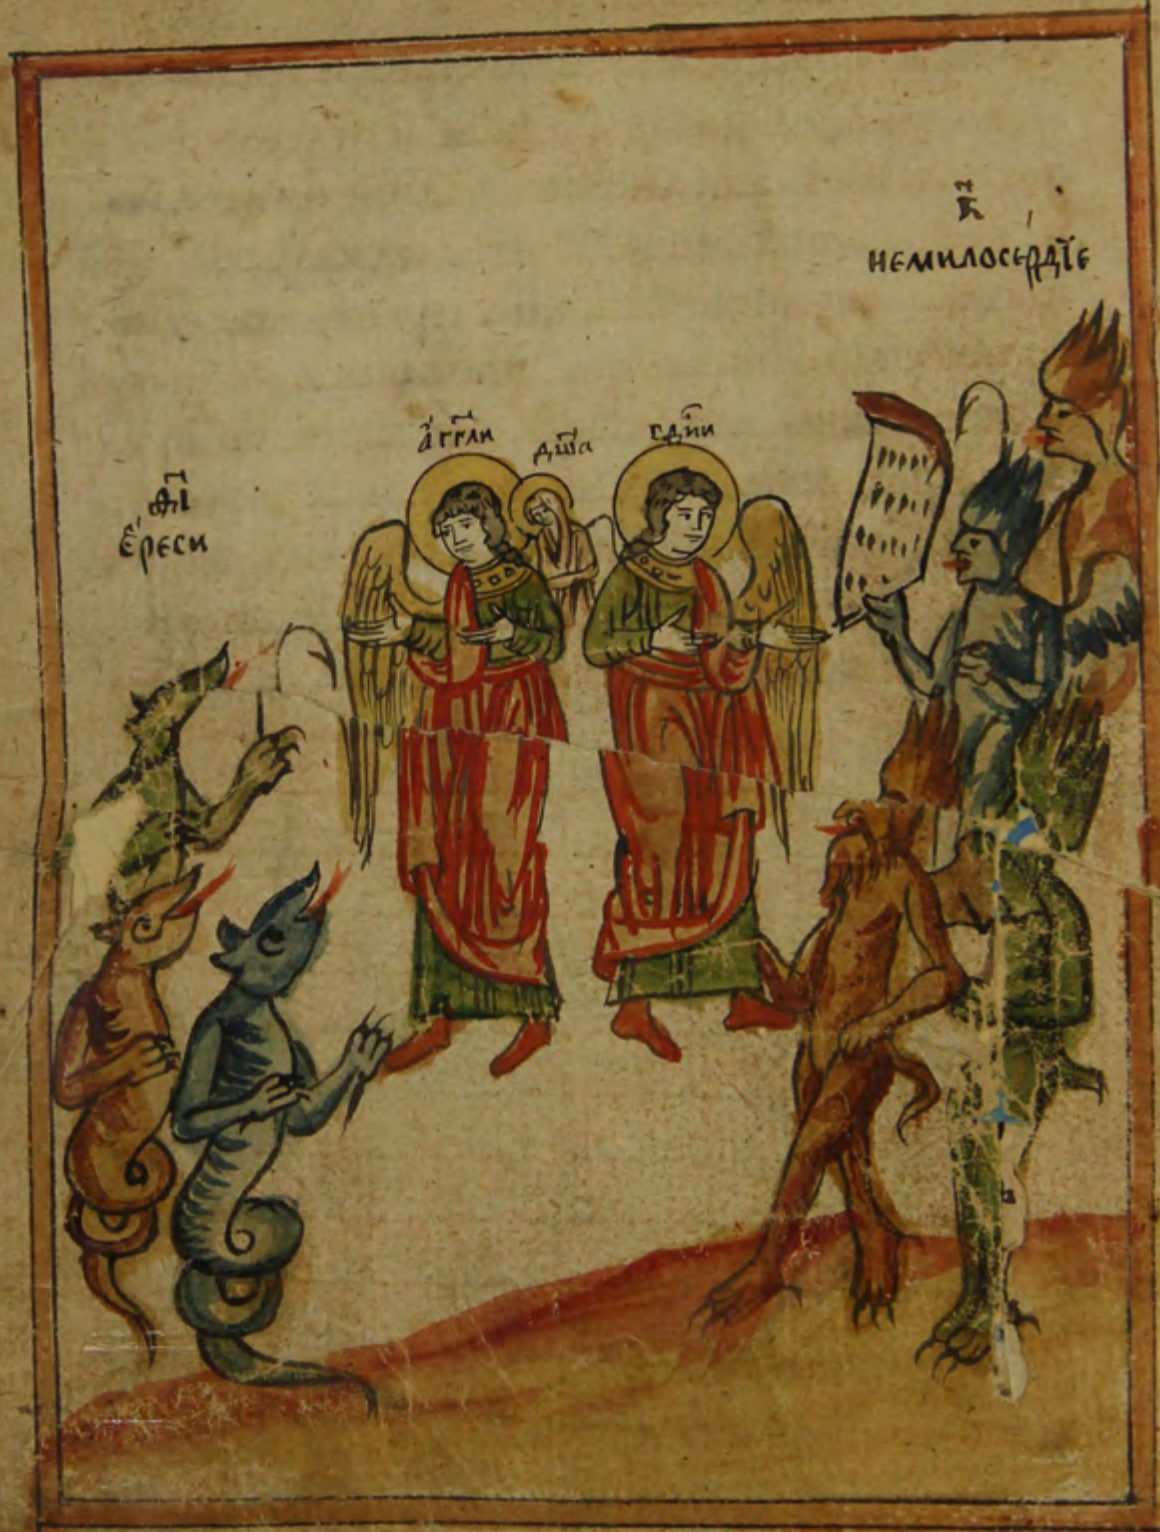 к҃
немилосердїе
а҆гг҃ли дш҃а гдⷭ҇ни
ѳ҃і
е҆реси